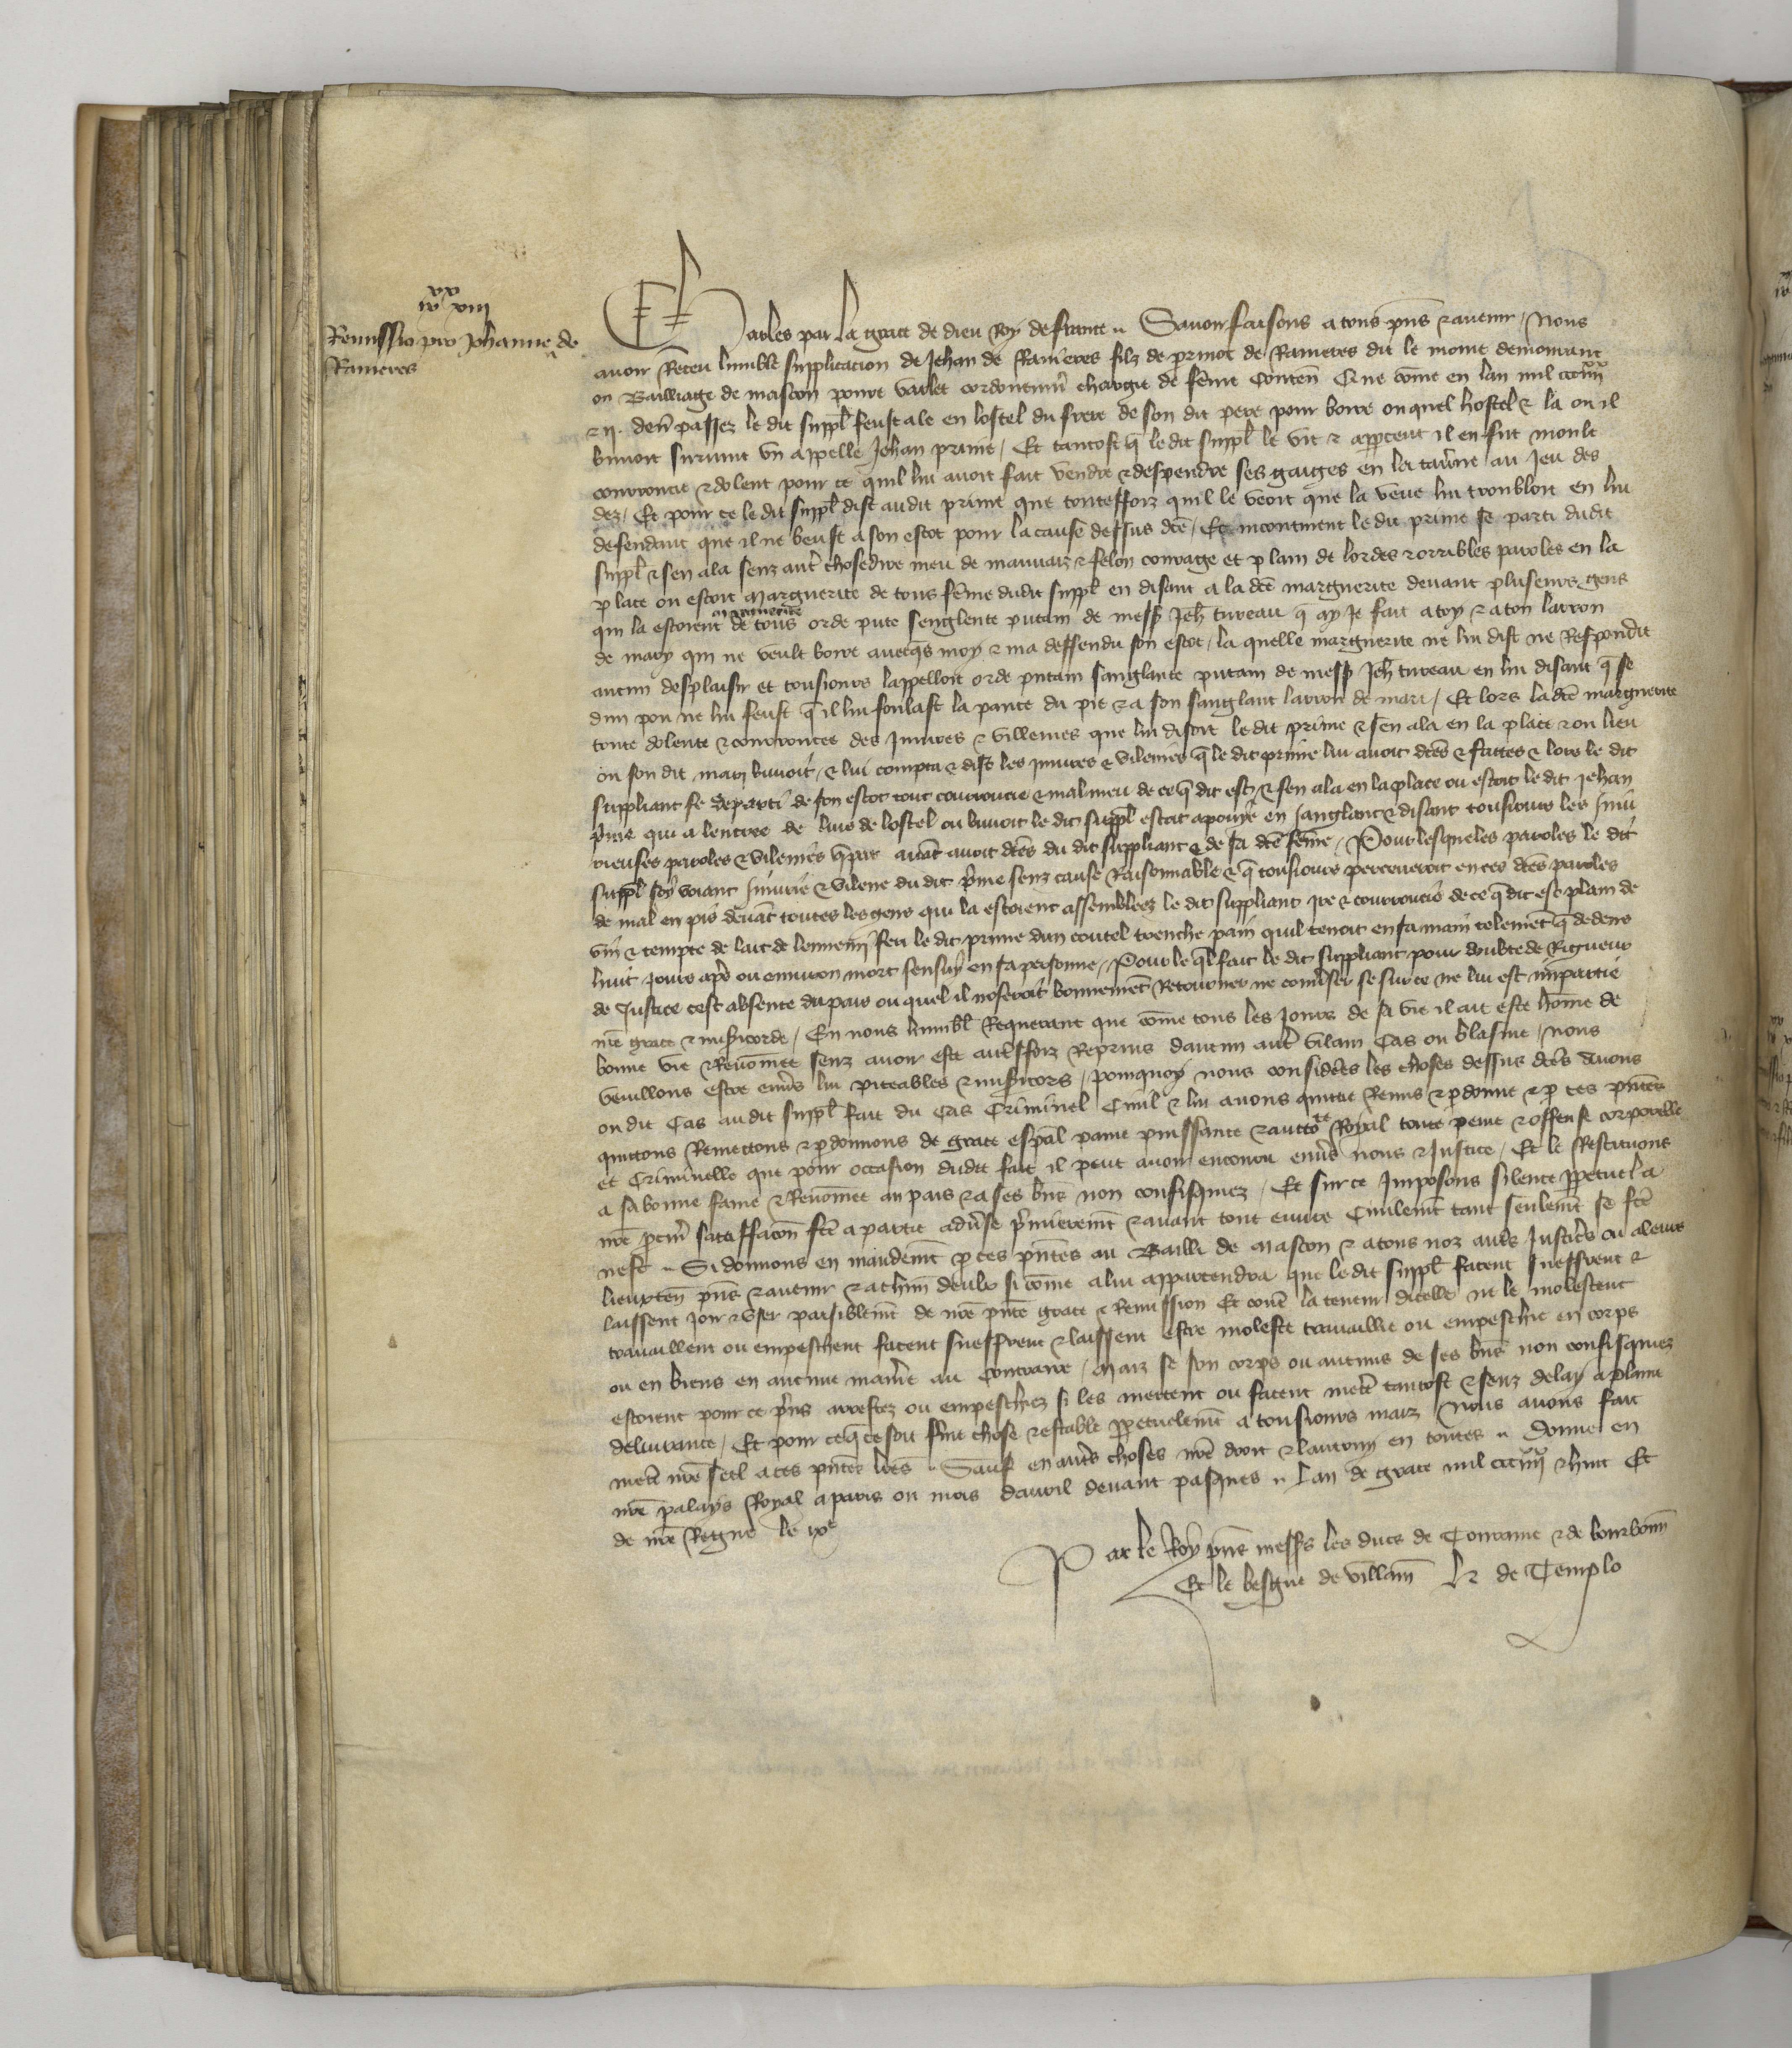 xx
iiii xiii
Remissio pro Johanne de
Rameres
Charles par la grace de dieu Roy de france Savoir faisons a tous pns et avenir / Nous
avoir Receu lumble supplicacion de Jehan de Rameres filz de perinot de Rameres dit le moine demourant
ou Bailliage de mascon povre varlet cordouennier chargie de feme Conten Que come en lan mil ccc
et II. derr passez le dit suppl feust ale en lostel du frere de son dit pere pour boire ou quel hostel et la ou il
buvoit survint un appelle Jehan prime / Et tantost q le dit suppl le vit et appceut il en fut moult
courroucie et dolent pour ce quil lui avoit fait vendre et despendre ses gaiges en la taverne au Jeu des
dez / Et pour ce le dit suppl dist audit prime que touteffoiz quil le veoit que la veue lui troubloit en lui
defendant que il ne beust a son escot pour la cause dessus dce / Et incontinent le dit prime se parti dudit
suppl et sen ala senz autre chose dire meu de mauvaiz et felon courage et plain de lordes et orribles paroles en la
place ou estoit Marguerite de tous feme dudit suppl en disant a la dce marguerite devant pluseurs gens
qui la estoient marguerite de tous orde pute senglente putain de mess Jeh tureau q ay Je fait a toy et a ton larron
de mary qui ne veult boire avecqs moy et ma deffendu son escot / la quelle marguerite ne lui dist ne Respondit
aucun desplaisir et tousjours lappelloit orde putain sanglante putain de mess Jeh tureau en lui disant q se
dun pou ne lui feust q il lui foulast la pance du pie et a son sanglant larron de mari / Et lors la dce marguerite
toute dolente et courroucee des Injures et villenies que lui disoit le dit prime et sen ala en la place et ou lieu
ou son dit mary buvoit / et lui compta et dist les injures et vilenies q le dit prime lui avoit dces et faittes et lors le dit
suppliant se departi de son escot tout courroucie et mal meu de ce q dit est et sen ala en la place ou estoit le dit Jehan
prime qui a lentree de luis de lostel ou buvoit le dit suppl estoit apouye en sanglant et disant tousjours les Inju
rieuses paroles et vilenies q par avant avoit dces du dit suppliant et de sa dce feme / Pour lesqueles paroles le dit
suppl soy voiant Injurie et vilene du dit prime senz cause Raisonnable et q tousjours perseveroit en ces dces paroles
de mal en pis devant toutes les gens qui la estoient assembleez le dit suppliant ire et courroucie de ce q dit est plain de
vin et tempte de lait de lennemi feri le dit prime dun coutel trenche pain quil tenoit en sa main telement q dedens
huit jours apres ou environ mort sensuy en sa personne / Pour le ql fait le dit suppliant pour doubte de Rigueur
de Justice cest absente du pais ou quel il noseroit bonnement Retourner ne converser se sur ce ne lui est impartie
nre grace et misericorde / En nous humbl Requerant que come tous les Jours de sa vie il ait este home de
bonne vie et Renomee senz avoir este autreffoiz Repris daucun autre vilain Cas ou blasme / Nous
veuillons estre envers lui piteables et misericors / pourquoy nous considere les choses dessus dces avons
ou dit Cas audit suppl fait du Cas Criminel Civil et lui avons quitte Remis et pdonne et p ces pntes
quittons Remettons et pdonnons de grace espal plaine puissance et auctorite Royal toute peine et offense corporelle
et Criminelle que pour occasion dudit fait il peut avoir encouru envers nous et Justice / Et le Restituons
a sa bonne fame et Renomee au pais et a ses bns non confisquez / Et sur ce Imposons silence ppetuel a
nre procur satisffacon fce a partie adverse premierement et avant tout euvre Civilement tant seulement se fce
nest Si donnons en mandement p ces pntes au Bailli de Mascon et a tous noz autres Justiciers ou a leurs
lieuxten pns et avenir et a chun deulx si come a lui appartendra que le dit suppl facent sueffrent et
laissent Joir et user paisiblement de nre pnte grace et Remission Et contre la teneur dicelle ne le molestent
travaillent ou empeschent facent sueffrent et laissent estre moleste travaillie ou empeschie en corps
ou en biens en aucune maniere au Contraire / Maiz se son corps ou aucuns de ses bns non confisquez
estoient pour ce prins arrestez ou empeschez si les mettent ou facent mettre tantost et senz delay a plaine
delivrance / Et pour ce q ce soit ferme chose et estable ppetuelement a tousjours maiz Nous avons fait
mettre nre seel a ces pntes lres Sauf en autres choses nre droit et lautruy en toutes Donne en
nre palays Royal a paris ou mois davril devant pasques Lan de grace mil ccc et huit Et
de nre Regne le ixe
Par le Roy pns mess les ducs de Touraine et de bourbonn
Et le besgue de villain H de Templo